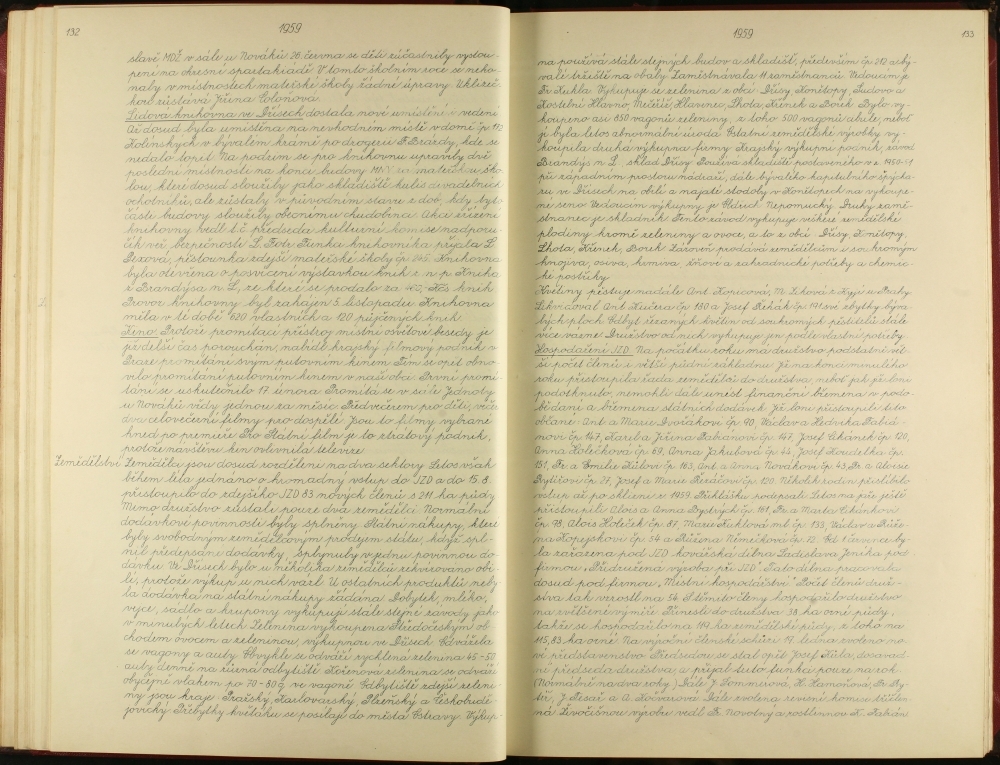 132
1959
slavě MDŽ v sále u Nováků 26. června se děti zúčastnily vystou-
pení na okresní spartakiádě V tomto školním roce se neko-
naly v místnostech mateřské školy žádné úpravy Uklízeč-
kou zůstává Jiřina Colonova
Lidová knihovna ve Dřísech dostala nové umístění i vedení
Až dosud byla umístěna na nevhodném místě v domě čp 113
Kolínských v bývalém krámě po drogerii F. Brzidy, kde se
nedalo topit Na podzim se pro knihovnu upravily dvě
poslední místnosti na konci budovy mateřskou ško-
lou, které dosud sloužily jako skladiště kulis divadelních
ochotníků, ale zůstaly v původním stavu z dob, kdy tyto
části budovy sloužily obecnímu chudobinci Akci zřízení
knihovny vedl t.č. předseda kulturní komise nadporu-
čík veř bezpečnosti S. Petr Funka knihovníka přijala S.
Pexová, pěstounka zdejší mateřské školy čp 245. Knihovna
byla otevřena o posvícení výstavkou knih z n p Kniha
z Brandýsa n L, ze které se prodalo za Kčs knih
Provoz knihovny byl zahájen 5. listopadu Knihovna
měla v té době 620 vlastních a 120 půjčených knih
Kino. Protože promítací přístroj místní osvětové besedy je
již delší čas porouchán, nabídl krajský filmový podnik v
Praze promítání svým putovním kinem Tím se opět obno-
vilo promítání putovním kinem v naší obci. První promí-
tání se uskutečnilo 17 února Promítá se v sále Jednoty
u Nováků vždy jednou za měsíc Předvečerem pro děti, večer
dva celovečerní filmy pro dospělé Jsou to filmy vybrané
hned po premiéře Pro Státní film je to ztrátový podnik,
protože návštěvu kin ovlivnila televize
Zemědělství Zemědělci jsou dosud rozděleni na dva sektory Letos však
během léta jednáno o hromadný vstup do JZD a do 15. 8.
přistoupilo do zdejšího JZD 83 nových členů s 211 ha půdy
Mimo družstvo zůstali pouze dva zemědělci Normální
dodávkové povinnosti byly splněny Státní nákupy, které
byly svobodným zemědělcovým prodejem státu, když spl-
nil předepsané dodávky, splynuly v jednu povinnou do-
dávku Ve Dřísech bylo u několika zemědělců rekvirováno obi-
lí, protože výkup u nich vázl U ostatních produktů neby-
la dodávka na státní nákupy žádána Dobytek, mléko,
vejce, sádlo a krupony vykupují stále stejné závody jako
v minulých letech Zelenina vykoupena Středočeským ob-
chodem ovocem a zeleninou, výkupnou ve Dřísech Odvážela
se vagony a auty Obvykle se odváží rychlená zelenina 45-50
auty denně na různá odbytiště Kořenová zelenina se odváží
obyčejně vlakem po 70-80 q ve vagoně Odbytiště zdejší zeleni-
ny jsou kraje Pražský, Karlovarský, Plzeňský a Českobudě-
jovický Přebytky květáku se posílají do města Ostravy Výkup-
1959
133
na používá stále stejných budov a skladišť, především čp 212 a bý-
valé tržiště na obaly Zaměstnávala 11 zaměstnanců Vedoucím je
Fr Kukla Vykupuje se zelenina z obcí Dřísy, Konětopy, Sudovo a
Kostelní Hlavno, Mečeříž, Hlavenec, Lhota, Křenek a Borek Bylo vy-
koupeno asi 850 vagonů zeleniny, z toho 500 vagonů cibule, neboť
jí byla letos abnormální úroda Ostatní zemědělské výrobky vy-
koupila druhá výkupna firmy Krajský výkupní podnik, závod
Brandýs n L. sklad Dřísy Používá skladiště postaveného v r. 1950-51
při západním prostoru nádraží, dále bývalého kapitulního špýcha-
ru ve Dřísech na obilí a najaté stodoly v Konětopech na vykoupe-
né seno Vedoucím výkupny je Oldřich Nepomucký Druhý zamě-
stnanec je skladník Tento závod vykupuje veškeré zemědělské
plodiny kromě zeleniny a ovoce, a to z obcí Dřísy, Konětopy,
Lhota, Křenek, Borek Zároveň prodává zemědělcům i soukromým
hnojiva, osiva, krmiva, žňové a zahradnické potřeby a chemic-
ké postřiky
Květiny pěstuje nadále Ant. Kopicová, M. Liková z Kyjí u Prahy
Likvidoval Ant Kučera čp 130 a Josef Řezák čp 171 své zbytky býva-
lých ploch Odbyt řezaných květin od soukromých pěstitelů stále
více vázne Družstvo od nich vykupuje jen podle vlastní potřeby
Hospodaření JZD Na počátku roku má družstvo podstatně vět-
ší počet členů i větší půdní základnu Již na konci minulého
roku přistoupila řada zemědělců do družstva, neboť jak již loni
podotknuto, nemohli dále unést finanční břemena v podo-
bě daní a břemena státních dodávek Již loni přistoupili tito
občané: Ant a Marie Dvořákovi čp 90, Václav a Hedvika Fabiá-
novi čp 147, Karel a Jiřina Fabiánovi čp 147, Josef Cikánek čp 120,
Anna Holečkova čp 69, Anna Jakubová čp 44, Josef Koudelka čp.
151, Fr. a Emilie Hůlovi čp 163, Ant. a Anna Novákovi čp 43, Fr a Aloisie
Bytířovi čp 27, Josef a Marie Řeráčovi čp 120. Několik rodin přislíbilo
vstup až po sklizni r 1959 Přihlášku podepsali Letos na jaře ještě
přistoupili Alois a Anna Bystrých čp. 161, Fr. a Marta Cikánkovi
čp. 98, Alois Holeček čp. 87, Marie Kuklová ml čp. 133, Václav a Růže-
na Kopejskovi čp 54 a Růžena Němečková čp 12. Od 1 července by-
la zařazena pod JZD kovářská dílna Ladislava Jeníka pod
firmou „Přidružená výroba při JZD“ Tato dílna pracovala
dosud pod firmou „Místní hospodářství“ Počet členů druž-
stva tak vzrostl na 54 S těmito členy hospodařilo družstvo
na zvětšené výměře Přinesli do družstva 38 ha orné půdy,
takže se hospodařilo na 119 ha zemědělské půdy, z toho na
115,83 ha orné Na výroční členské schůzi 17 ledna zvoleno no-
vé představenstvo Předsedou se stal opět Josef Hůla, dosavad-
ní předseda družstva, a přijal tuto funkci pouze na rok
(Normálně na dva roky) Dále J Lommeiová, H. Hamoňová, Fr By-
tíř, J Pesař a A. Kočenová Dále zvolena revisní komise tříčlen-
ná Živočišnou výrobu vedl Fr Novotný a rostlinnou K Fabián